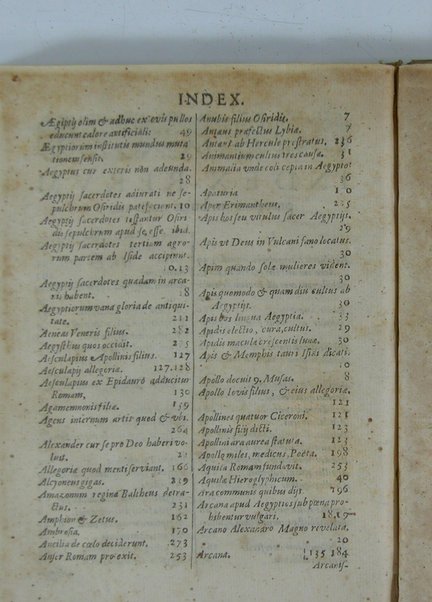 INDEX.
Ægiptij olim & adhuc ex ovis pullos
educunt calore artificiali: 49
Ægyptiorum institutis mundus muta
tionem sensit. 29
Aegyptus cur exteris non adeunda.
28
Aegyptij sacerdotes adiurati ne se-
pulchrum Osiridis patefacerent. 10
Aegyptij sacerdotes testantur Osiri
dis sepulchrum apud se, esse. ibid.
Aegyptij sacerdotes tertiam agro-
rum partem ab Iside accipiunt.
10.13
Aegyptij sacerdotes quædam in arca-
nis habent. 18
Aegyptiorum vana gloria de antiqui-
tate. 211
Aeneas Veneris filius. 282
Aegysthus quos occidit. 275
Aesculapius Apollinis filius. 127
Aesculapij allegoria. 127.128
Aesculapius ex Epidauro adducitur
Romam. 130
Agamemnonis filia. 159
Agens internum artis quod & vis.
264
Alexander cur se pro Deo haberi vo-
luit. 21
Allegoria quod menti serviant. 166
Alcyoneus gigas. 229
Amazonum regina Baltheus detra-
ctus. 231
Amphion & Zetus. 162
Ambrosia. 170
Ancilia de cœlo deciderunt. 273
Anser Romam prodit. 253
Anubis filius Osiridis. 7
Antæus præfectus Lybia. 7
Antæus ab Hercule prostratus. 236
Animantium cultus tres causa. 31
Animalia unde coli cepta in Aegypto?
36
Apaturia 110
Aper Erimantheus. 225
Apis bos seu vitulus sacer Aegyptijs.
29
Apis ut Deus in Vulcani fano locatus.
30
Apim quando sola mulieres vident.
30
Apis quomodo & quam diu cultus ab
Aegyptijs. 30
Apis bos lingua Aegyptia. 33
Apidis electio, cura, cultus. 29
Apidis macula crescentis luna. 30
Apis & Memphis tauri Isini dicati.
10
Apollo docuit 9. Musas. 8
Apollo Iovis filius, & eius allegoria.
121
Apollines quatuor Ciceroni. 121
Apollinis sicij dicti. 123
Apollini ara aurea statuta. 123
Apollo miles, medicus, Poëta. 198
Aquila Romam fundavit. 253
Aquila Hieroglyphicum. 40
Ara communis quibus dijs. 296
Arcana apud Aegyptios sub pœna pro-
hibentur vulgari. 18.19
Arcano Alexandro Magno revelata.
20
Arcana. 135 184
Arcartis-